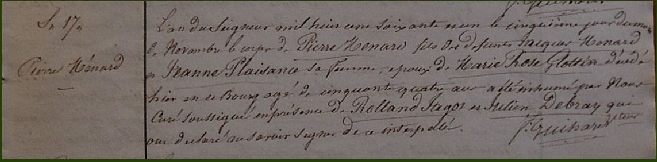 Sre 17e
Pierre Hénard
L'an du Seigneur mil huit cent soixante neuf le cinquième jour du mois
de Novembre le corps de Pierre Hénard fils de feu Jacques Hénard
et Jeanne Plaisance sa femme, époux de Marie Rose Glossin décédé
hier en ce Bourg agé de cinquante quatre ans a été inhumé par Nous
Curé soussigné en présence de Rolland Jagot et Julien Debray qui
ont déclaré ne savoir signer de ce interpellé.
J. Guihard